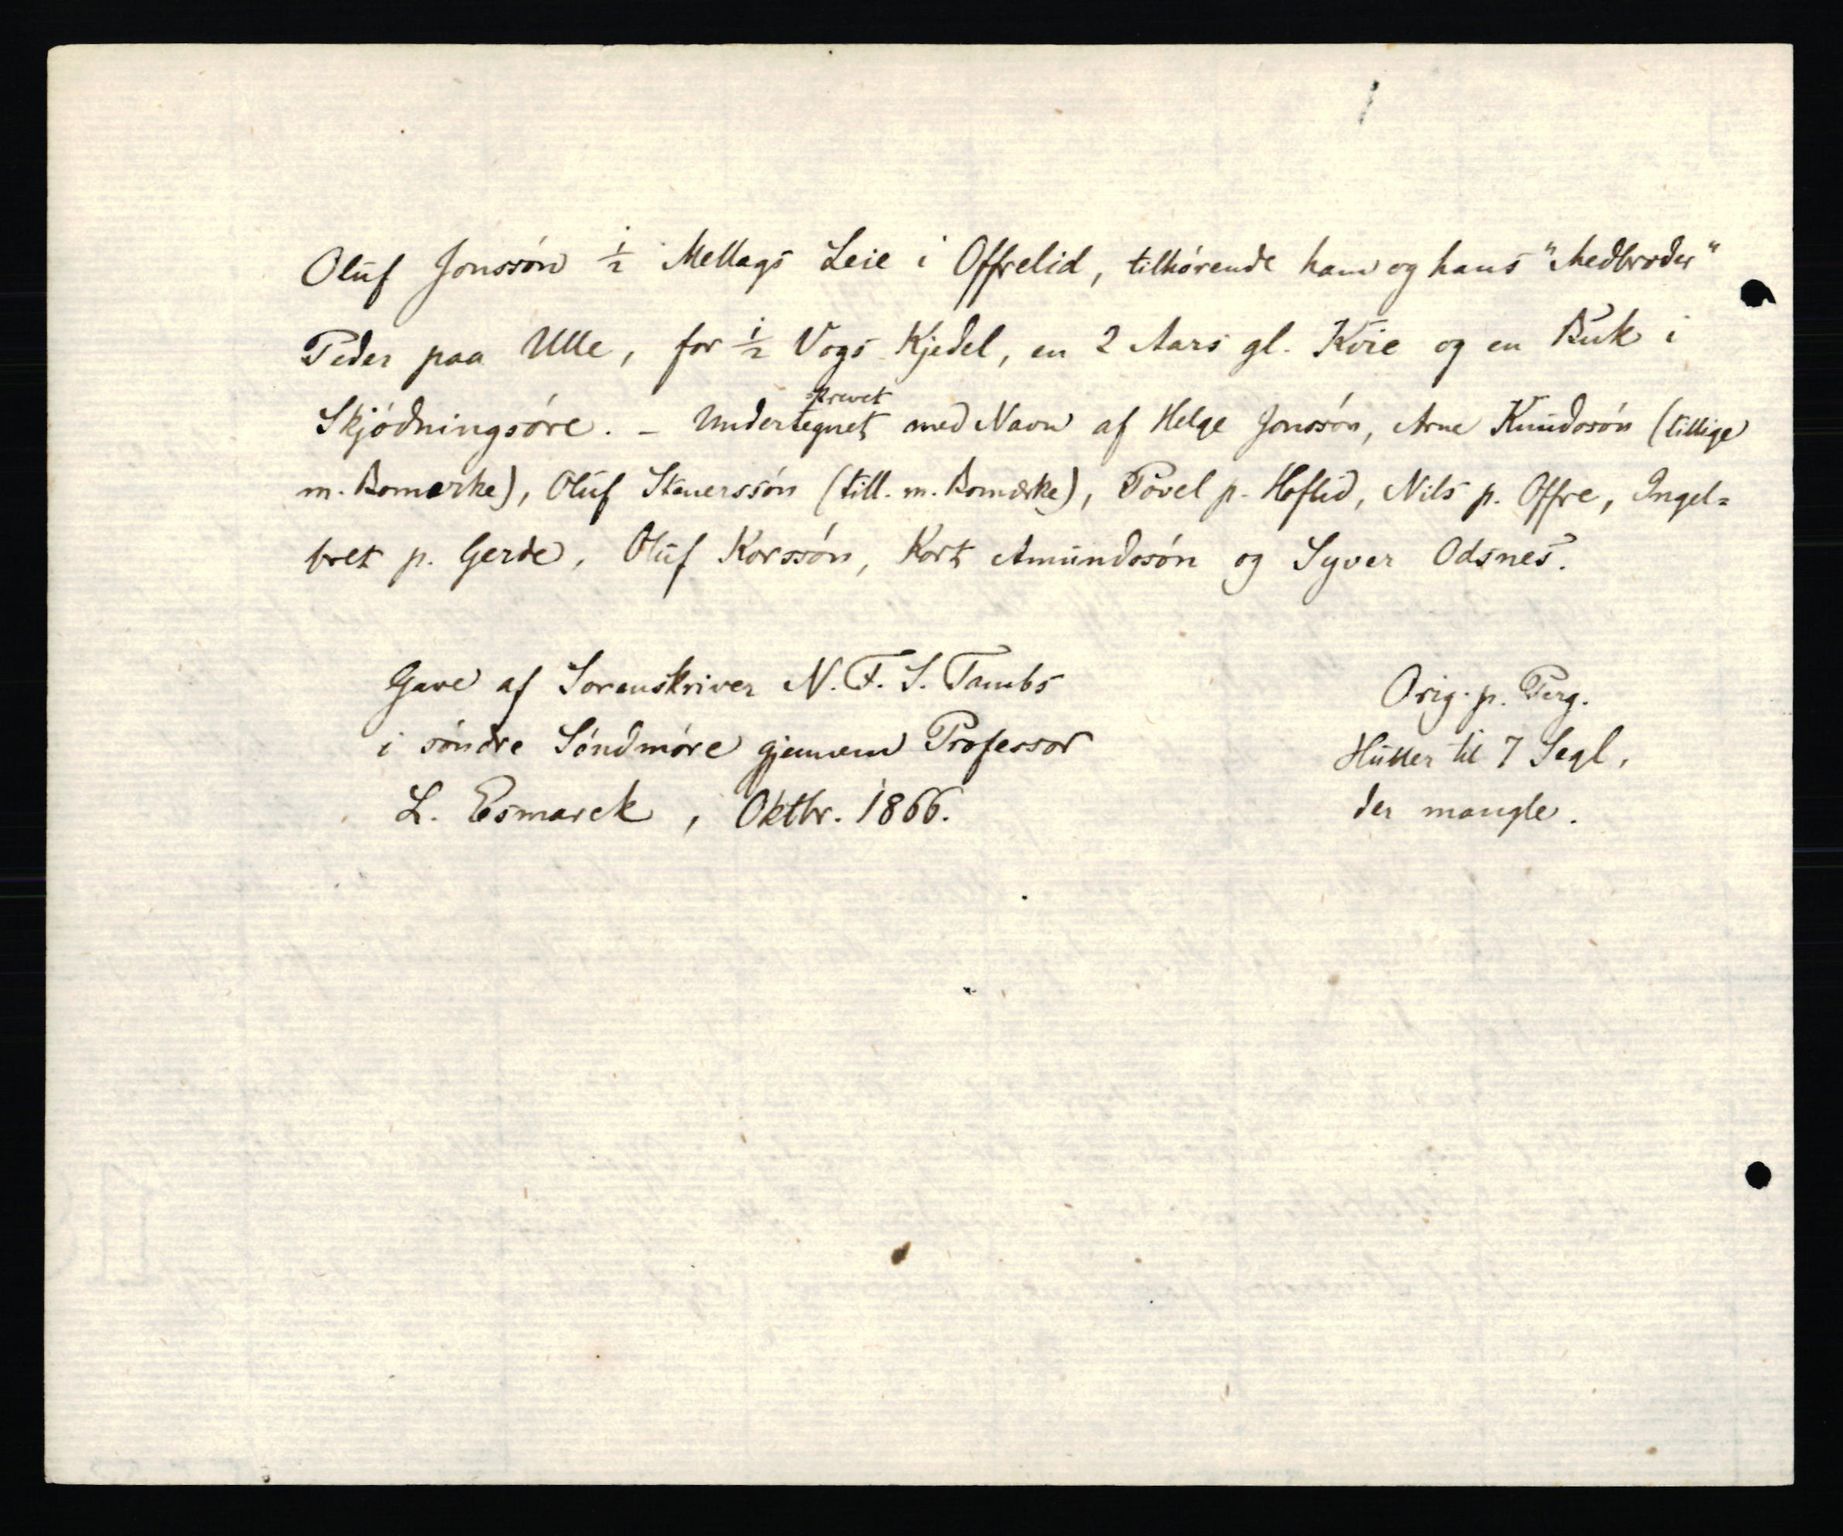 Oluf Jonssön ½ Mellags Leie i Offrelid, tilhörende ham og hans "Medbroder"
Peder paa Ulle, for ½ Vogs Kjedel, en 2 Aars gl. Kvie og en Buk i
Skjödningsöre. – Undertegnet med Navn af Helge Jonssön, Arne Knudssön (tillige
skrevet
m. Bomærke), Oluf Steuerssön (till. m. Bomærke), Povel p. Hoflid, Nils p. Offre, Ingel=
bret p. Gerde, Oluf Korssön, Kort Amundssön og Syver Odsnes.
Gave af Sorenskriver N. F. S. Tambs
i söndre Söndmöre gjennem Professor
L. Esmarck, Oktbr. 1866.
Orig. p. Perg.
Huller til 7 Segl,
der mangle.